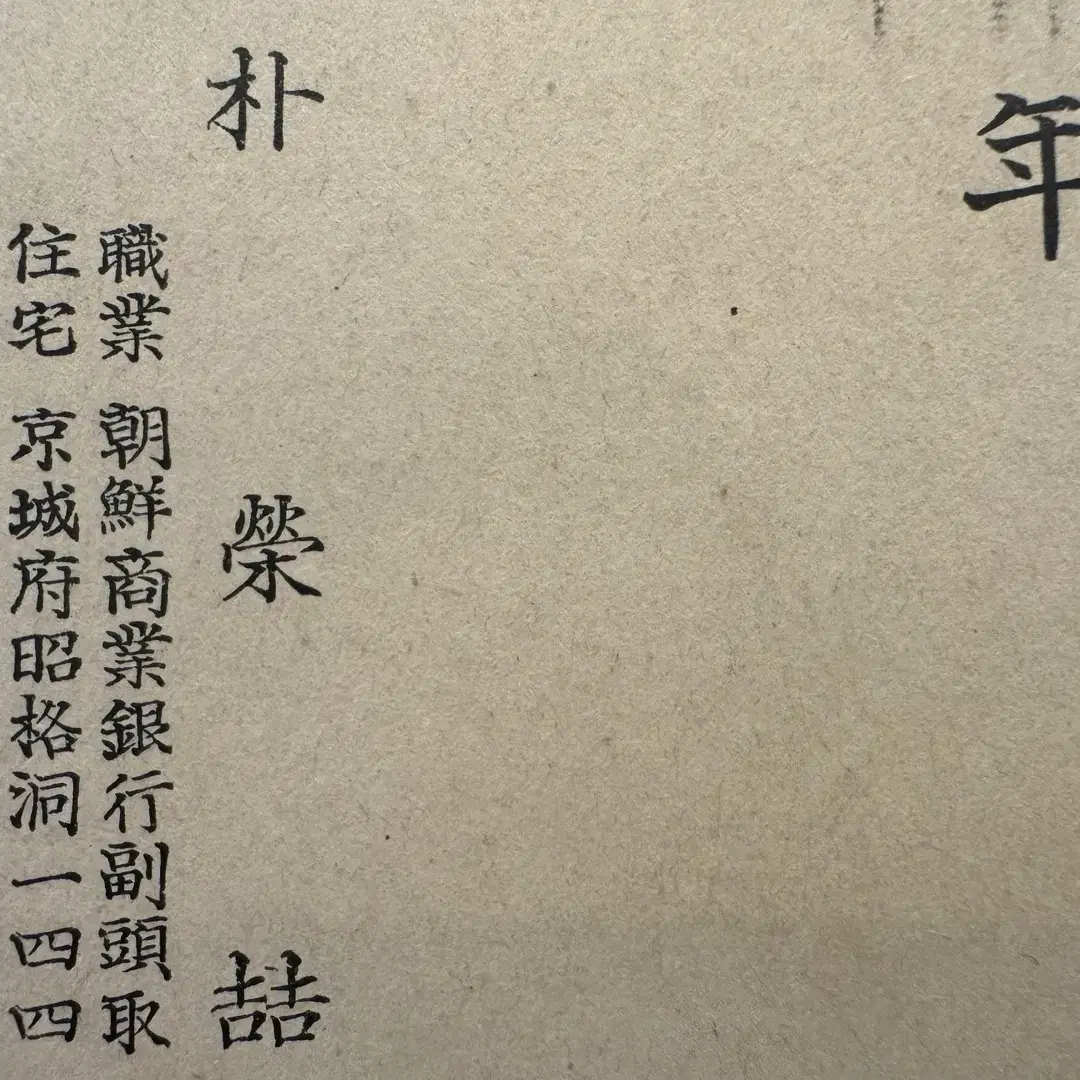 年
朴榮喆
職業 朝鮮商業銀行副頭取
住宅 京城府昭格洞一四四